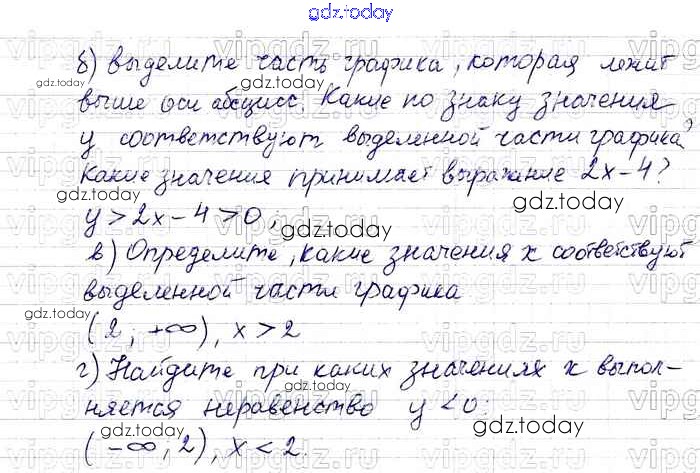 gdz.today
б) выделите часть графика, которая лежит
выше оси абсцисс. Какие по знаку значения
у соответствуют выделенной части графика?
Какие значения принимает выражение 2х-4?
gdz.today
у > 2х - 4 > 0;
gdz.today
в) Определите, какие значения х соответствуют
выделенной части графика
gdz.today
(2; +∞), х > 2
г) Найдите при каких значениях х выпол-
gdz.today
няется неравенство у < 0:
gdz.today
(-∞; 2), х < 2.
gdz.today